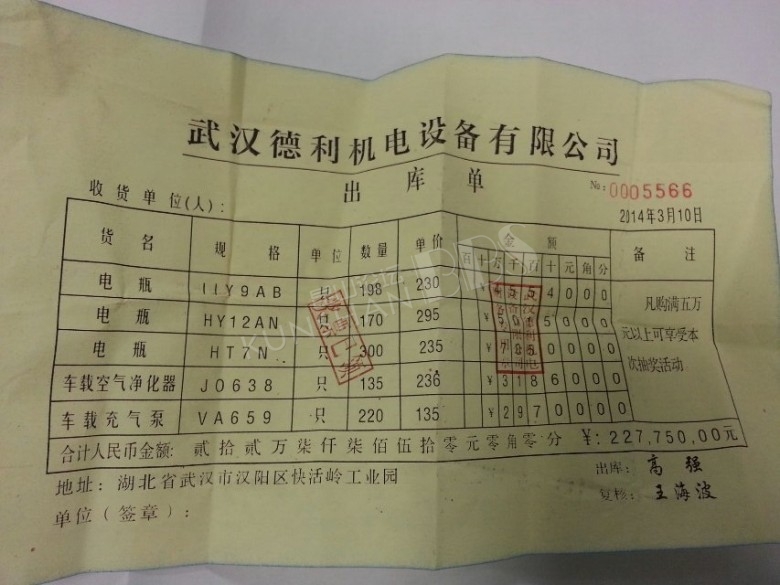 武汉德利机电设备有限公司
出库单
№: 0005566
收货单位(人):
2014年3月10日
货名 规格 单位 数量 单价 金额 备注
百 十 万 千 百 十 元 角 分
电瓶 IIY9AB 只 198 230 ¥ 4 5 5 4 0 0 0
电瓶 HY12AN 只 170 295 ¥ 5 0 5 0 0 0
电瓶 HT7N 只 300 235 ¥ 7 0 5 0 0 0 0
车载空气净化器 J0638 只 135 236 ¥ 3 1 8 6 0 0 0
车载充气泵 VA659 只 220 135 ¥ 2 9 7 0 0 0 0
凡购满五万
元以上可享受本
次抽奖活动
合计人民币金额: 贰拾贰万柒仟柒佰伍拾零元零角零分 ¥: 227,750,00元
地址: 湖北省武汉市汉阳区快活岭工业园
出库: 高强
单位(签章):
复核: 王海波